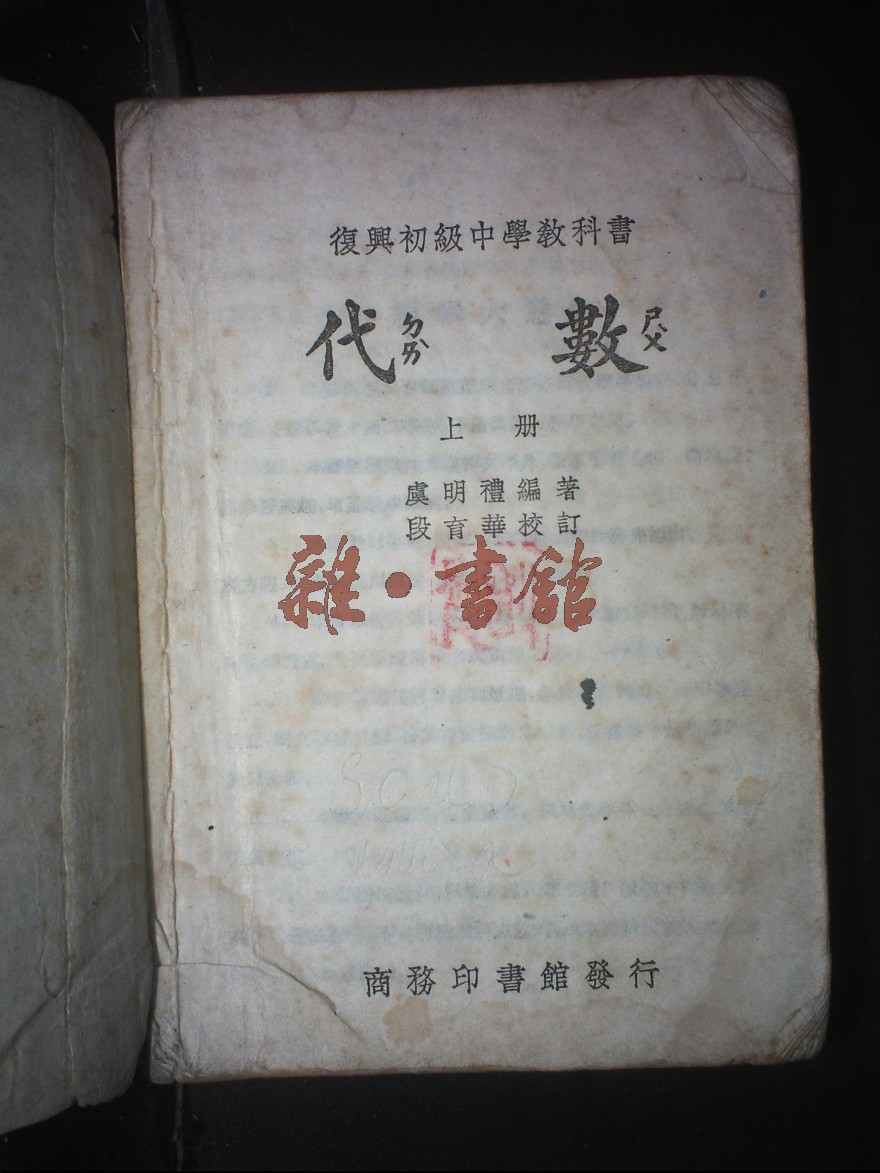 復興初級中學教科書
代ㄉㄞˋ 數ㄕㄨˋ
上册
虞明禮編著
段育華校訂
雜·書館
商務印書館發行